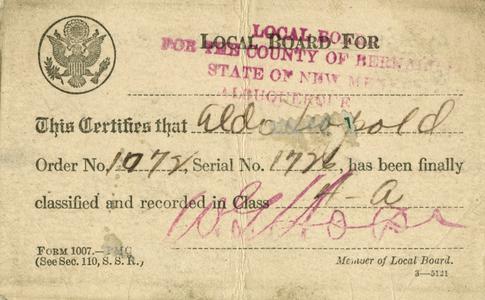 LOCAL BOARD FOR
LOCAL BOARD
FOR THE COUNTY OF BERNALILLO
STATE OF NEW MEXICO
ALBUQUERQUE
This Certifies that Aldo Leopold
Order No. 1072, Serial No. 1726, has been finally
classified and recorded in Class 4-a
FORM 1007.—PMG
(See Sec. 110, S. S. R.)
Member of Local Board.
3—5121